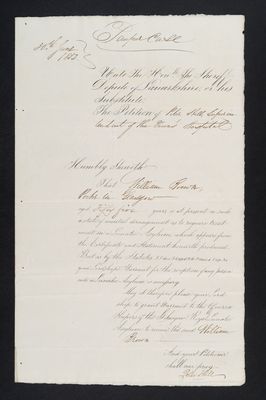 Pauper Case
Unto The Honble. The Sheriff
Depute of Lanarkshire, or his
Substitute
The Petition of Peter Hill Superin
tendent of the Town's Hospital
Humbly Sheweth
That William Brown
Porter in Glasgow
aged Fifty five years is at present in such
a state of mental derangement as to require treat
ment in a Lunatic Asylum, which appears from
the Certificate and Statement herewith produced
But as by the Statutes
your Lordship's Warrant for the reception of any person
into a Lunatic Asylum is necessary
May it therefore please your Lord
ship to grant Warrant to the
Keepers of the Glasgow Royal Lunatic
Asylum to receive the said William
Brown
And your Petitioner
shall ever pray.
Peter Hill